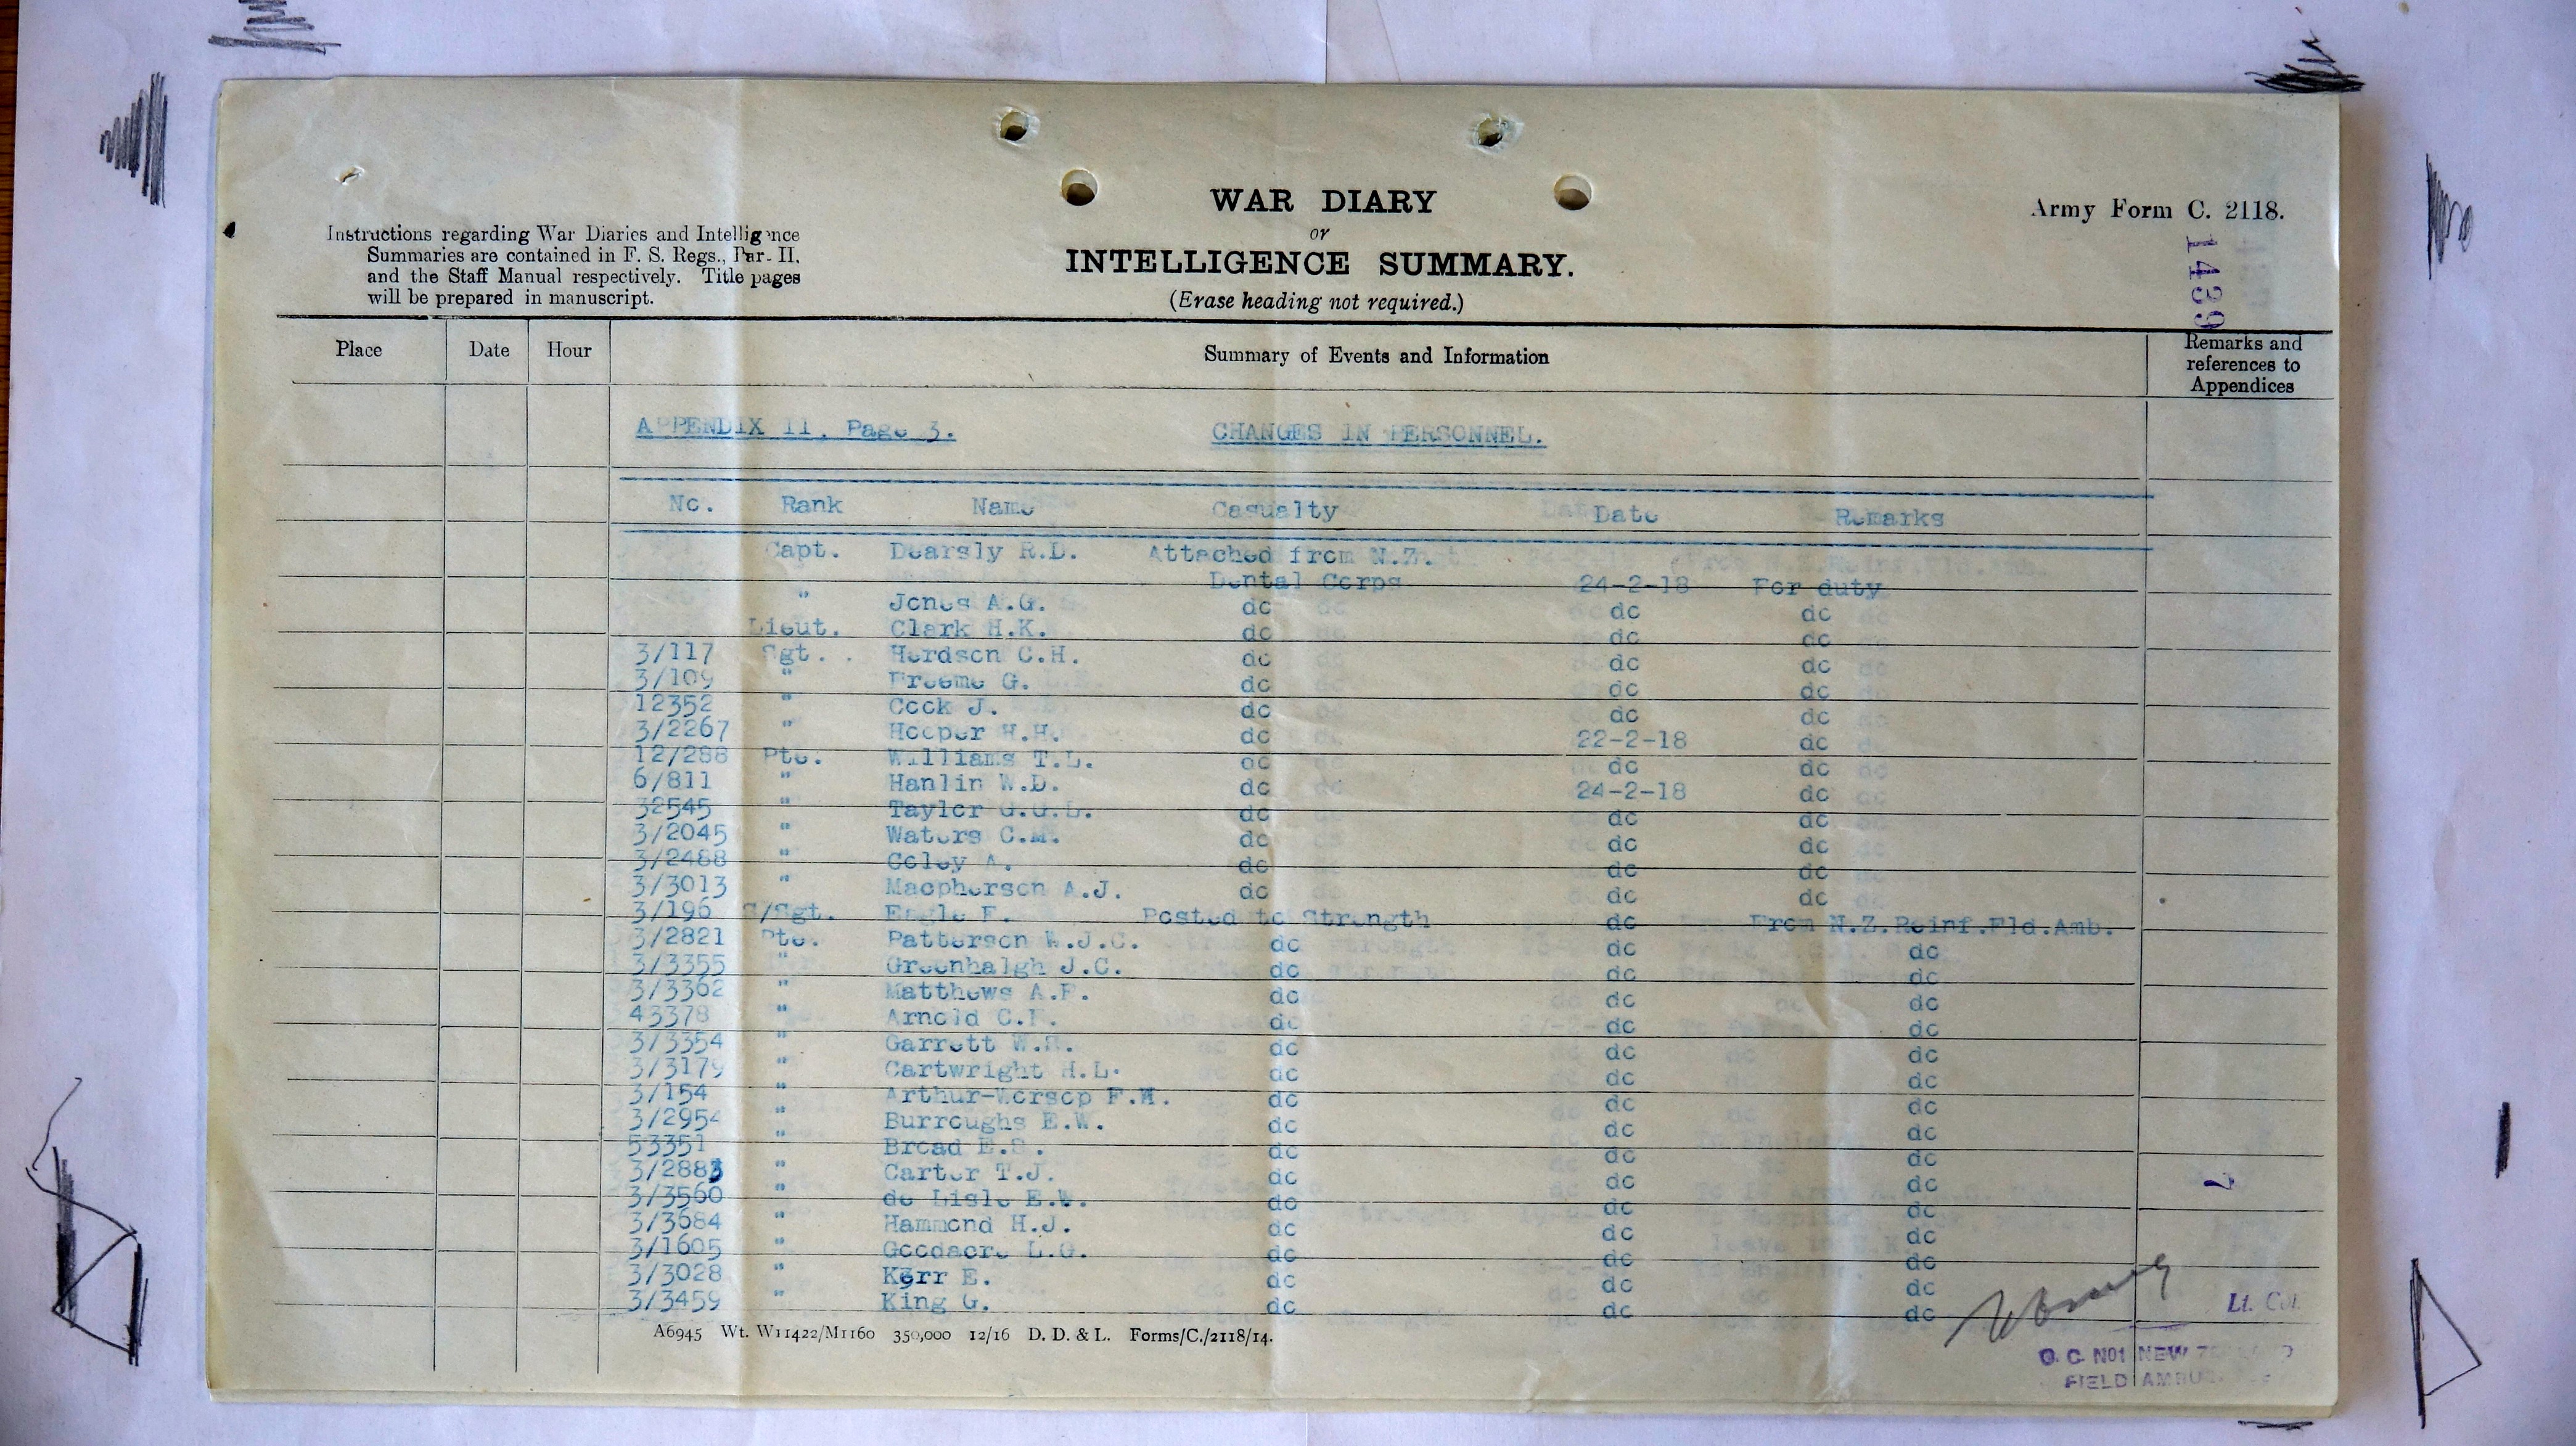 WAR DIARY
or
INTELLIGENCE SUMMARY.
(Erase heading not required.)
Army Form C. 2118.
1439
Instructions regarding War Diaries and Intelligence
Summaries are contained in F. S. Regs., Par. II.
and the Staff Manual respectively. Title pages
will be prepared in manuscript.
Place Date Hour Summary of Events and Information Remarks and references to Appendices
APPENDIX 11, Page 3. CHANGES IN PERSONNEL.
No. Rank Name Casualty Date Remarks
Capt. Dearsly R.D. Attached from N.Z.
Dental Corps 24-2-18 For duty
" Jones A.G. do do do
Lieut. Clark H.K. do do do
3/117 Sgt. Herdson C.H. do do do
3/109 " Freeme G. do do do
12352 " Cock J. do do do
3/2267 " Hooper H.H. do 22-2-18 do
12/288 Pte. Williams T.L. do do do
6/811 " Hanlin W.D. do 24-2-18 do
32545 " Taylor do do do
3/2045 " Waters C.M. do do do
3/2488 " Coley A. do do do
3/3013 " Macpherson A.J. do do do
3/196 S/Sgt. Eagle F. Posted to Strength do From N.Z.Reinf.Fld.Amb.
3/2821 Pte. Patterson W.J.C. do do do
3/3355 " Greenhalgh J.C. do do do
3/3362 " Matthews A.P. do do do
43378 " Arnold C.F. do do do
3/3354 " Garrett do do do
3/3179 " Cartwright H.L. do do do
3/154 " Arthur-Worsop F.W. do do do
3/2954 " Burroughs E.W. do do do
53351 " Broad E.S. do do do
3/2883 " Carter T.J. do do do
3/3560 " de Lisle E.W. do do do
3/3684 " Hammond H.J. do do do
3/1605 " Goodacre L.G. do do do
3/3028 " Kerr E. do do do
3/3459 " King G. do do do
7
Lt. Col.
O.C. NO1 NEW ZEALAND
FIELD AMBULANCE
A6945 Wt. W11422/M1160 350,000 12/16 D. D. & L. Forms/C./2118/14.